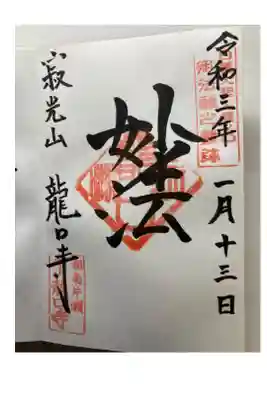 令和三年 一月十三日
妙法
寂光山 龍口寺